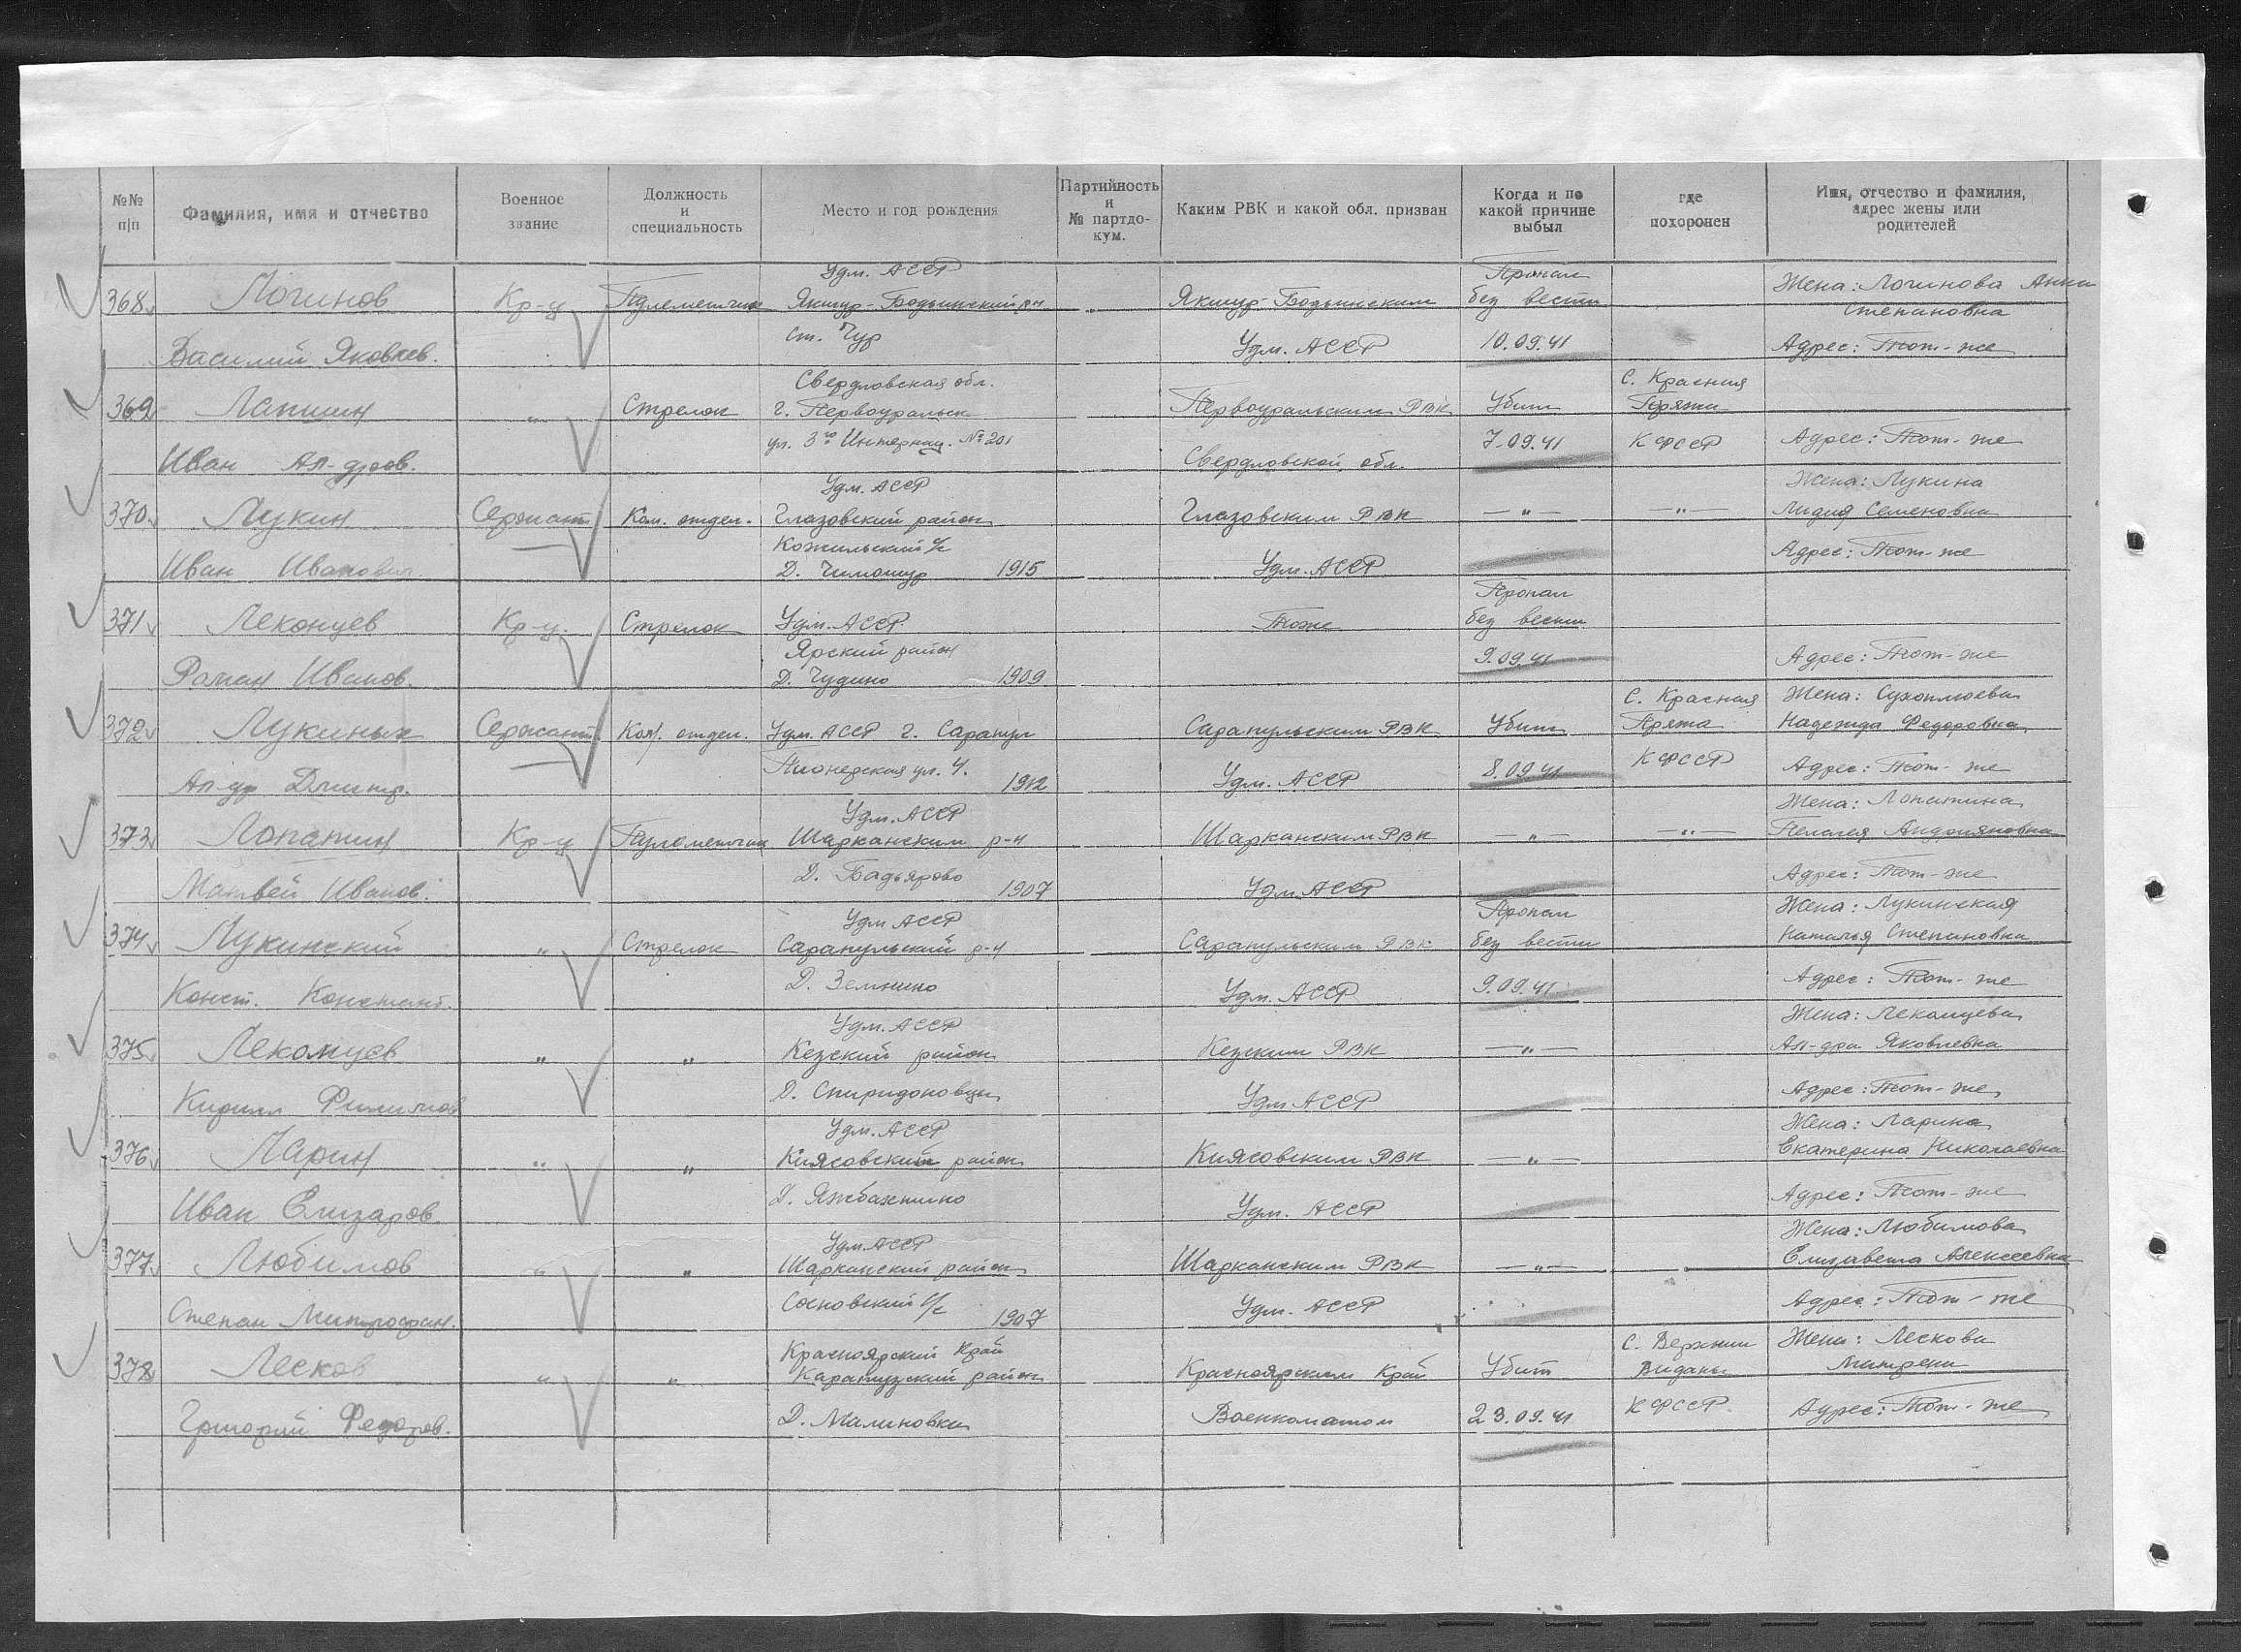 №№ п|п
Фамилия, имя и отчество
Военное звание
Должность и специальность
Место и год рождения
Партийность и № партдокум.
Каким РВК и какой обл. призван
Когда и по какой причине выбыл
где похоронен
Имя, отчество и фамилия, адрес жены или родителей
Удм. АССР Пропал
368 Логинов Кр-ц Пулеметчик Якшур-Бодьинский р-н Якшур-Бодьинским без вести Жена: Логинова Анна
ст. Чур Степановна
Василий Яковлев. Удм. АССР 10.09.41 Адрес: Тот-же
Свердловская обл. С. Красная
369 Лапшин " Стрелок г. Первоуральск Первоуральским РВК Убит Пряжа
ул. 3го Интернац. № 201 7.09.41 КФССР Адрес: Тот-же
Иван Ал-дров. Свердловской обл.
Удм. АССР Жена: Лукина
370 Лукин Сержант Ком. отдел. Глазовский район Глазовским РВК —"— —"— Лидия Семеновна
Кожильский с/с Адрес: Тот-же
Иван Иванович Д. Чимошур 1915 Удм. АССР
Пропал
371 Леконцев Кр-ц. Стрелок Удм. АССР. Тоже без вести
Ярский район 9.09.41 Адрес: Тот-же
Роман Иванов. Д. Чудино 1909
С. Красная Жена: Сухоплюева
372 Лукиных Сержант Ком. отдел. Удм. АССР г. Сарапул Сарапульским РВК Убит Пряжа Надежда Федоровна
Пионерская ул. 4. Удм. АССР 8.09.41 КФССР Адрес: Тот-же
Ал-др Дмитр. 1912
Удм. АССР Жена: Лопатина
373 Лопатин Кр-ц Пулеметчик Шарканским р-н Шарканским РВК —"— —"— Пелагея Андрияновна
Д. Бадьярово Адрес: Тот-же
Матвей Иванов. 1907 Удм. АССР
Удм АССР Пропал Жена: Лукинская
374 Лукинский " Стрелок Сарапульский р-н Сарапульским РВК без вести Наталья Степановна
Д. Земнино 9.09.41 Адрес: Тот-же
Конст. Констант. Удм. АССР
Удм. АССР Жена: Лекомцева
375 Лекомцев " " Кезский район Кезским РВК —"— Ал-дра Яковлевна
Д. Спиридоновцы Адрес: Тот-же
Кирилл Удм АССР
Удм. АССР Жена: Ларина
376 Ларин " " Киясовский район Киясовским РВК —"— Екатерина Николаевна
Д. Адрес: Тот-же
Иван Елизаров. Удм. АССР
Удм. АССР Жена: Любимова
377 Любимов " " Шарканский район Шарканским РВК —"— " Елизавета Алексеевна
Сосновский с/с Удм. АССР Адрес: Тот-же
Степан Митрофан. 1907
Красноярский Край С. Верхнии Жена: Лескова
378 Лесков " " Каратузский район Красноярским Край Убит Виданы Матрена
Д. Малиновка Военкоматом 23.09.41 КФССР. Адрес: Тот-же
Григорий Федоров.